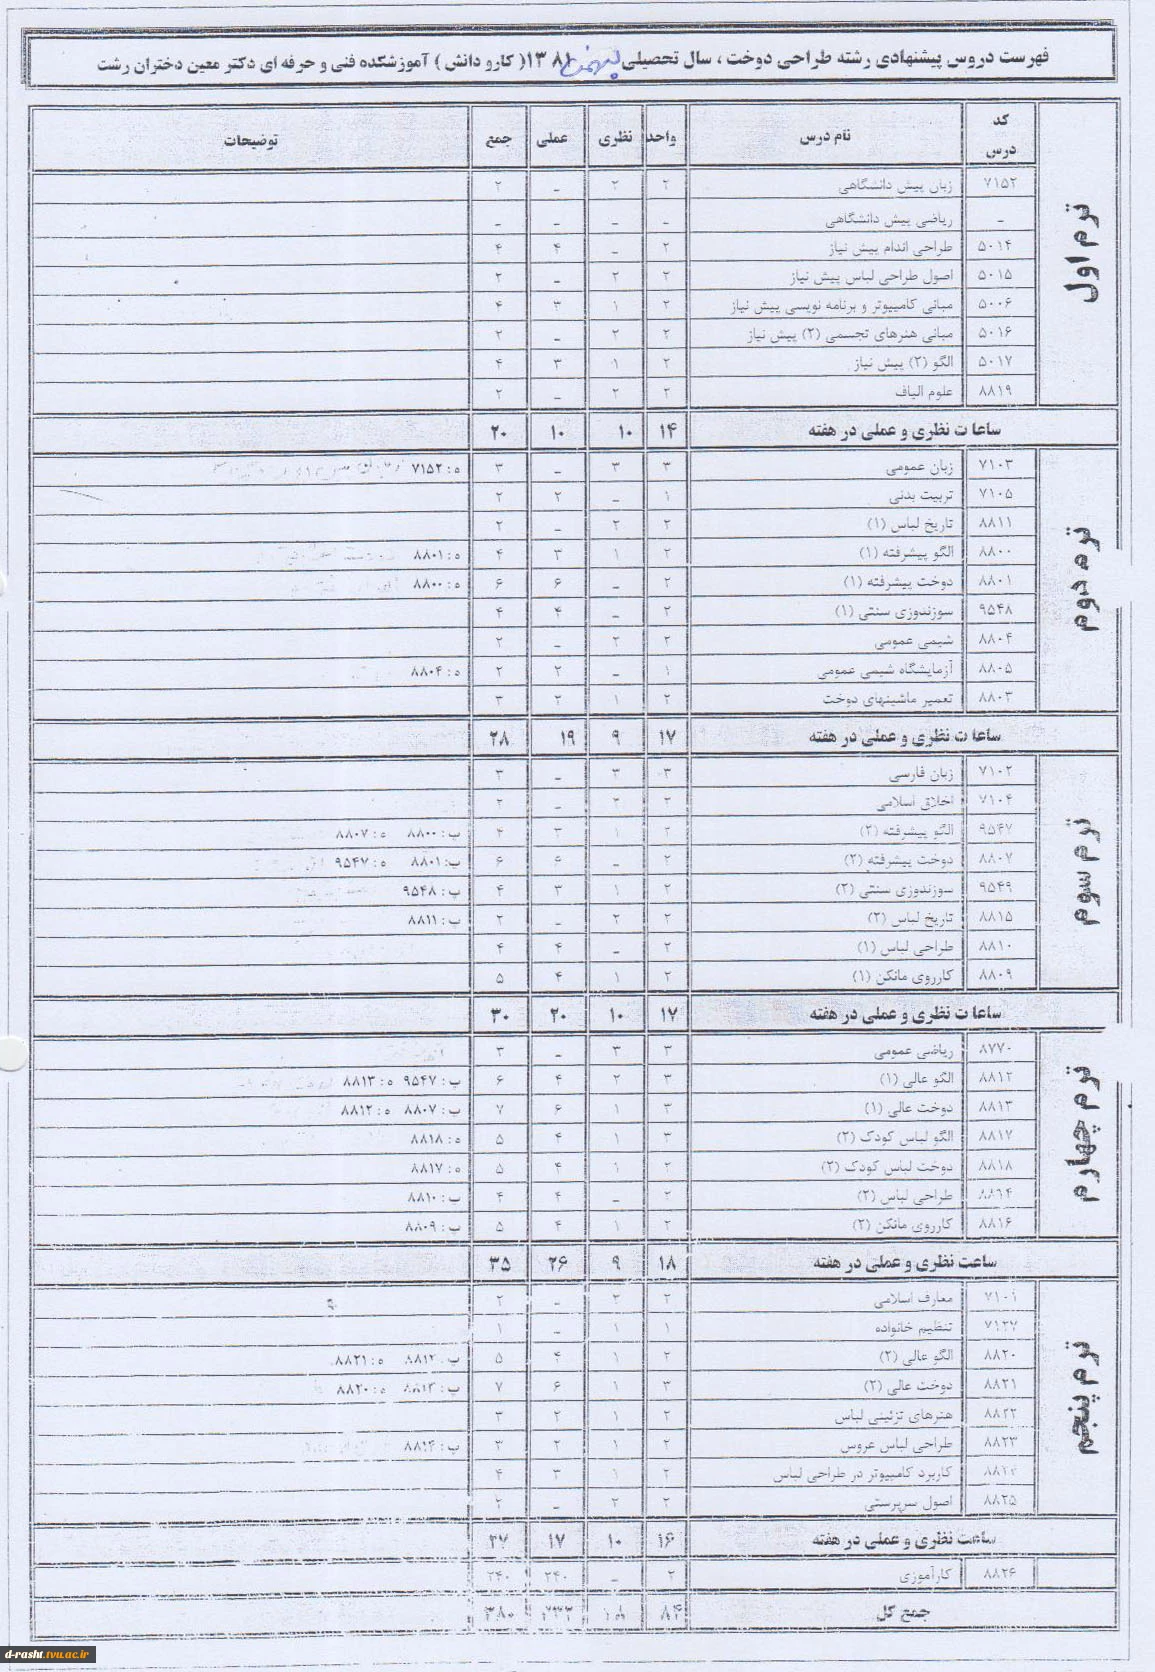 فهرست دروس پیشنهادی رشته طراحی دوخت ، سال تحصیلی بهمن ۱۳۸۱ ( کارو دانش ) آموزشکده فنی و حرفه ای دکتر معین دختران رشت
کد درس نام درس واحد نظری عملی جمع توضیحات
ترم اول
۷۱۵۲ زبان پیش دانشگاهی ۲ ۲ _ ۲
_ ریاضی پیش دانشگاهی _ _ _ _
۵۰۱۴ طراحی اندام پیش نیاز ۲ _ ۴ ۴
۵۰۱۵ اصول طراحی لباس پیش نیاز ۲ ۲ _ ۲
۵۰۰۶ مبانی کامپیوتر و برنامه نویسی پیش نیاز ۲ ۱ ۳ ۴
۵۰۱۶ مبانی هنرهای تجسمی (۲) پیش نیاز ۲ ۲ _ ۲
۵۰۱۷ الگو (۲) پیش نیاز ۲ ۱ ۳ ۴
۸۸۱۹ علوم الیاف ۲ ۲ _ ۲
ساعات نظری و عملی در هفته ۱۴ ۱۰ ۱۰ ۲۰
ترم دوم
۷۱۰۳ زبان عمومی ۳ ۳ _ ۳ ه : ۷۱۵۲
۷۱۰۵ تربیت بدنی ۱ _ ۲ ۲
۸۸۱۱ تاریخ لباس (۱) ۲ ۲ _ ۲
۸۸۰۰ الگو پیشرفته (۱) ۲ ۱ ۳ ۴ ه : ۸۸۰۱
۸۸۰۱ دوخت پیشرفته (۱) ۲ _ ۶ ۶ ه : ۸۸۰۰
۹۵۴۸ سوزندوزی سنتی (۱) ۲ _ ۴ ۴
۸۸۰۴ شیمی عمومی ۲ ۲ _ ۲
۸۸۰۵ آزمایشگاه شیمی عمومی ۱ _ ۲ ۲ ه : ۸۸۰۴
۸۸۰۳ تعمیر ماشینهای دوخت ۲ ۱ ۲ ۳
ساعات نظری و عملی در هفته ۱۷ ۹ ۱۹ ۲۸
ترم سوم
۷۱۰۲ زبان فارسی ۳ ۳ _ ۳
۷۱۰۴ اخلاق اسلامی ۲ ۲ _ ۲
۹۵۴۷ الگو پیشرفته (۲) ۲ ۱ ۳ ۴ پ : ۸۸۰۰ ه : ۸۸۰۷
۸۸۰۷ دوخت پیشرفته (۲) ۲ _ ۶ ۶ پ : ۸۸۰۱ ه : ۹۵۴۷
۹۵۴۹ سوزندوزی سنتی (۲) ۲ ۱ ۳ ۴ پ : ۹۵۴۸
۸۸۱۵ تاریخ لباس (۲) ۲ ۲ _ ۲ پ : ۸۸۱۱
۸۸۱۰ طراحی لباس (۱) ۲ _ ۴ ۴
۸۸۰۹ کارروی مانکن (۱) ۲ ۱ ۴ ۵
ساعات نظری و عملی در هفته ۱۷ ۱۰ ۲۰ ۳۰
ترم چهارم
۸۷۷۰ ریاضی عمومی ۳ ۳ _ ۳
۸۸۱۲ الگو عالی (۱) ۳ ۲ ۴ ۶ پ : ۹۵۴۷ ه : ۸۸۱۳
۸۸۱۳ دوخت عالی (۱) ۳ ۱ ۶ ۷ پ : ۸۸۰۷ ه : ۸۸۱۲
۸۸۱۷ الگو لباس کودک (۲) ۳ ۱ ۴ ۵ ه : ۸۸۱۸
۸۸۱۸ دوخت لباس کودک (۲) ۲ ۱ ۴ ۵ ه : ۸۸۱۷
۸۸۱۴ طراحی لباس (۲) ۲ _ ۴ ۴ پ : ۸۸۱۰
۸۸۱۶ کارروی مانکن (۲) ۲ ۱ ۴ ۵ پ : ۸۸۰۹
ساعت نظری و عملی در هفته ۱۸ ۹ ۲۶ ۳۵
ترم پنجم
۷۱۰۱ معارف اسلامی ۲ ۲ _ ۲
۷۱۲۷ تنظیم خانواده ۱ ۱ _ ۱
۸۸۲۰ الگو عالی (۲) ۲ ۱ ۴ ۵ پ : ۸۸۱۲ ه : ۸۸۲۱
۸۸۲۱ دوخت عالی (۲) ۳ ۱ ۶ ۷ پ : ۸۸۱۳ ه : ۸۸۲۰
۸۸۲۲ هنرهای تزئینی لباس ۲ ۱ ۲ ۳
۸۸۲۳ طراحی لباس عروس ۲ ۱ ۲ ۳ پ : ۸۸۱۴
کاربرد کامپیوتر در طراحی لباس ۲ ۱ ۳ ۴
۸۸۲۵ اصول سرپرستی ۲ ۲ _ ۲
ساعت نظری و عملی در هفته ۱۶ ۱۰ ۱۷ ۲۷
۸۸۲۶ کارآموزی ۲ _ ۲۴۰ ۲۴۰
جمع کل ۸۴ ۳۸۰
d-rasht.tvu.ac.ir